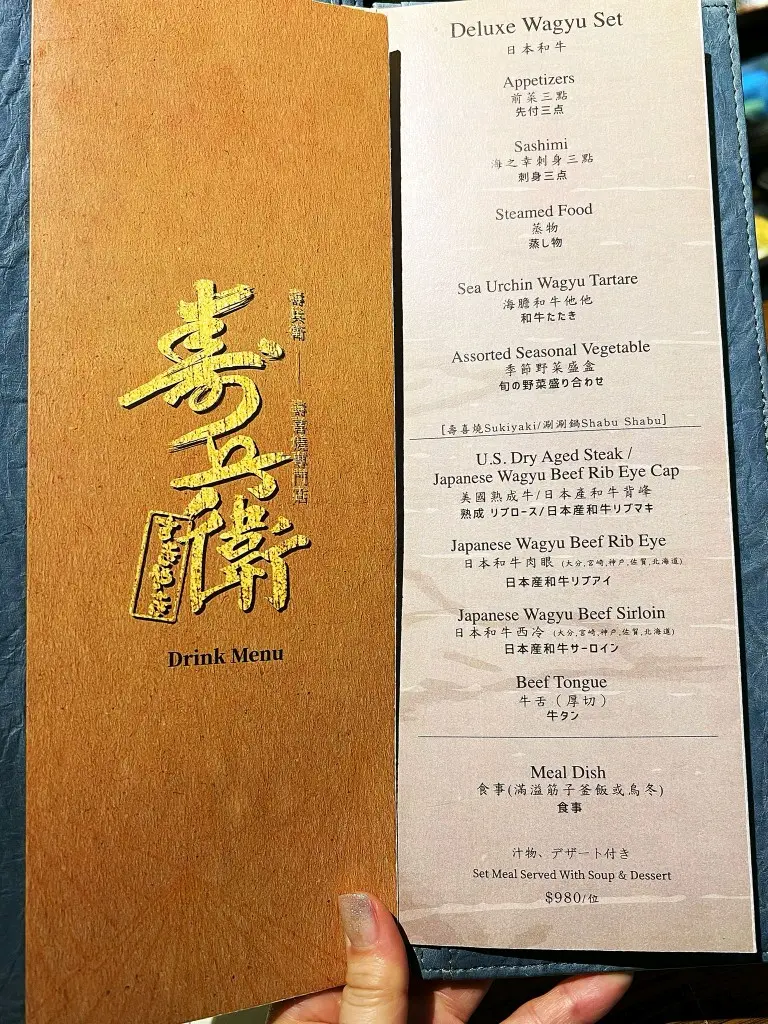 寿兵衛
壽兵衛 — 壽喜燒專門店
Drink Menu
Deluxe Wagyu Set
日本和牛
Appetizers
前菜三點
先付三点
Sashimi
海之幸刺身三點
刺身三点
Steamed Food
蒸物
蒸し物
Sea Urchin Wagyu Tartare
海膽和牛他他
和牛たたき
Assorted Seasonal Vegetable
季節野菜盛盒
旬の野菜盛り合わせ
[壽喜燒Sukiyaki/涮涮鍋Shabu Shabu]
U.S. Dry Aged Steak /
Japanese Wagyu Beef Rib Eye Cap
美國熟成牛/日本產和牛背峰
熟成 リブロース/日本産和牛リブマキ
Japanese Wagyu Beef Rib Eye
日本和牛肉眼 (大分,宮崎,神戶,佐賀,北海道)
日本産和牛リブアイ
Japanese Wagyu Beef Sirloin
日本和牛西冷 (大分,宮崎,神戶,佐賀,北海道)
日本産和牛サーロイン
Beef Tongue
牛舌（厚切）
牛タン
Meal Dish
食事(滿溢筋子釜飯或烏冬)
食事
汁物、デザート付き
Set Meal Served With Soup & Dessert
$980/位